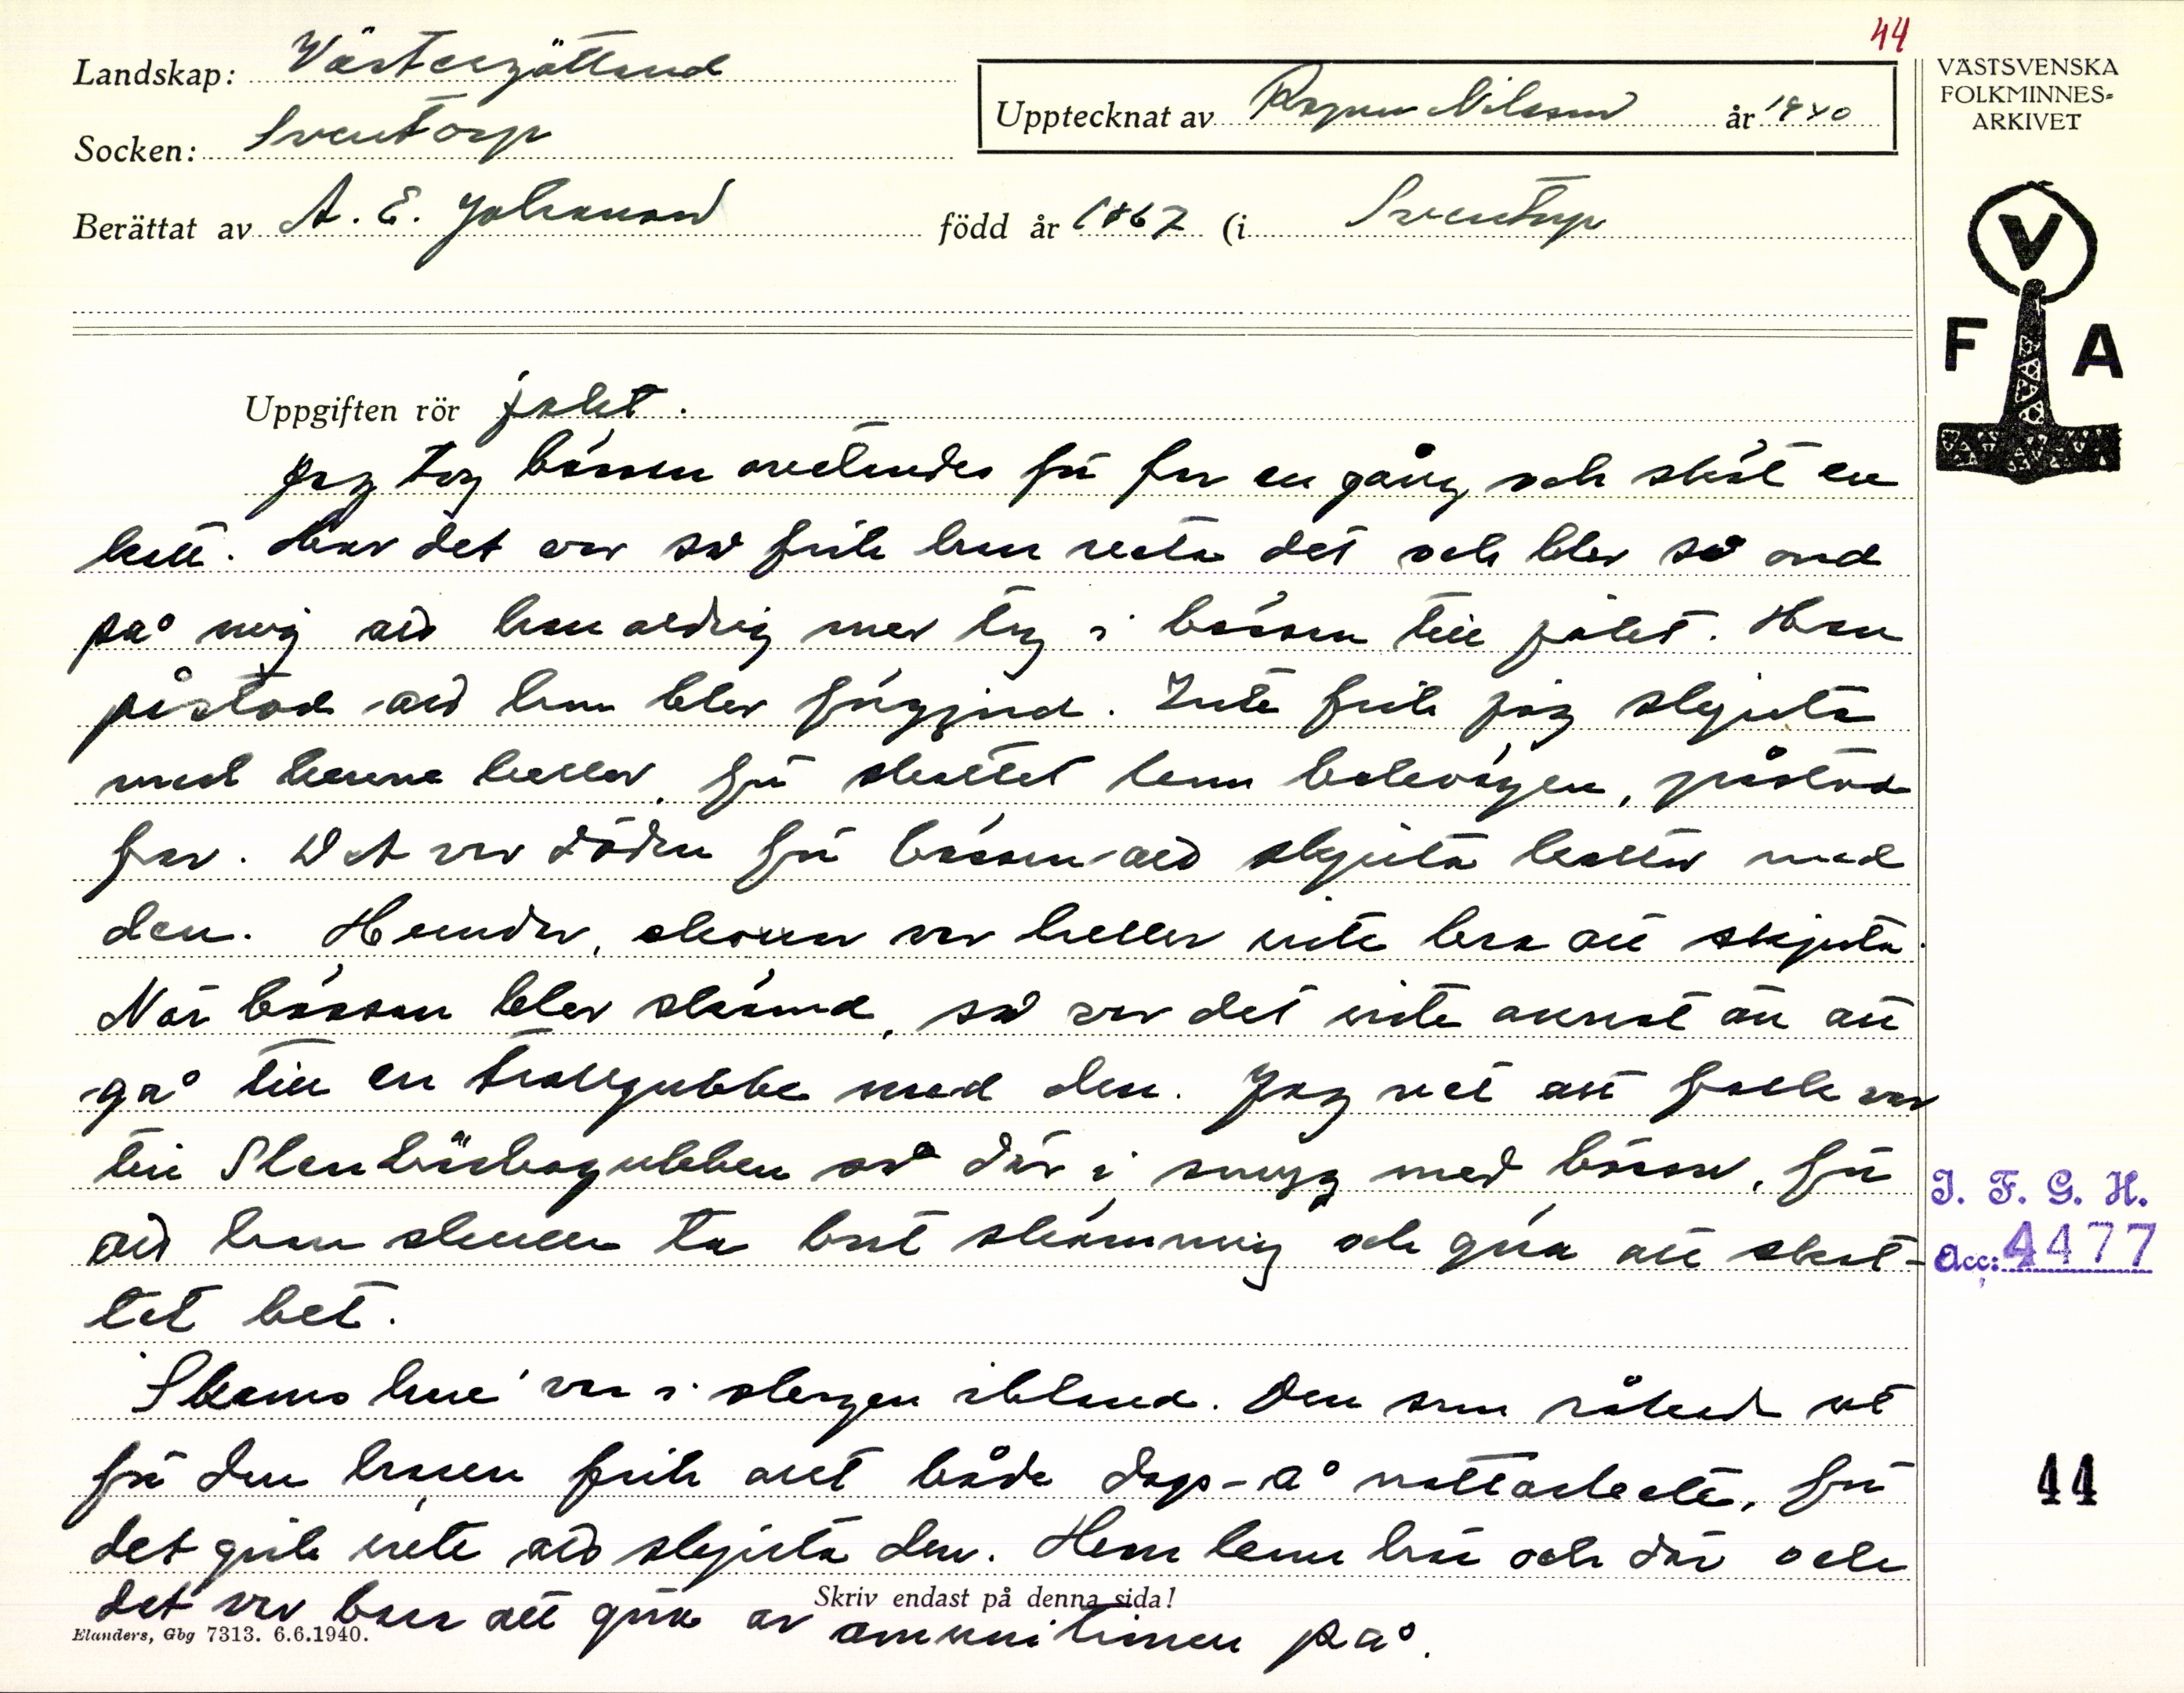 44
Landskap: Västergötland
Socken: Sventorp
Upptecknat av Ragnar Nilsson år 1940
Berättat av A. E. Johansson född år 1867 (i Sventorp
VÄSTSVENSKA
FOLKMINNES-
ARKIVET
V
F A
Uppgiften rör jakt.
Jag tog bössan ovetandes för far en gång och sköt en
katt. När det var så fick han veta det och blev så ond
på mig att han aldrig mer tog i bössan till jakt. Han
påstod att han blev förgjord. Inte fick jag skjuta
med henne heller, för skottet kom bakvägen, påstod
far. Det var döden för bössan att skjuta katter med
den. Hundar, skator var heller inte bra att skjuta.
När bössan blev skämd, så var det inte annat än att
gå till en trollgubbe med den. Jag vet att folk var
till Stenbäcksgubben så där i smyg med bössor, för
att han skulle ta bort skämning och göra att skot-
tet bet.
Skams hare var i skogen ibland. Den som råkade ut
för den haren fick allt både dags- å nattarbete, för
det gick inte att skjuta den. Han kom här och där och
det var bara att göra av ammunitionen på.
I. F. G. H.
Acc: 4477
44
Skriv endast på denna sida!
Elanders, Gbg 7313. 6.6.1940.